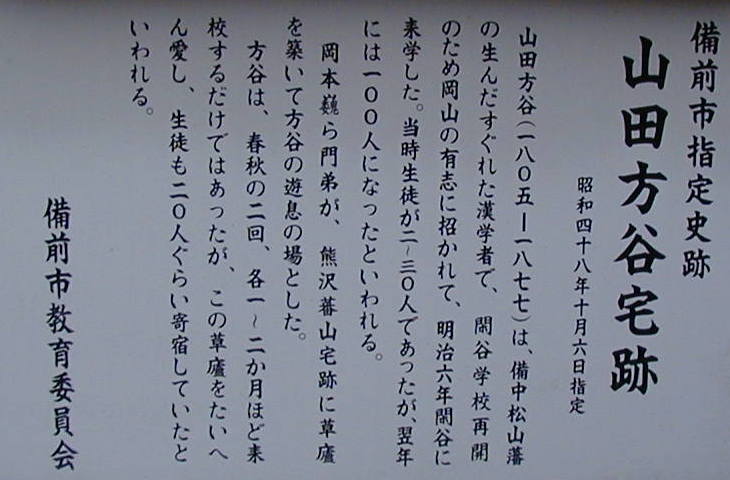 備前市指定史跡
山田方谷宅跡
昭和四十八年十月六日指定
山田方谷(一八〇五ー一八七七)は、備中松山藩
の生んだすぐれた漢学者で、閑谷学校再開
のため岡山の有志に招かれて、明治六年閑谷に
来学した。当時生徒が二~三〇人であったが、翌年
には一〇〇人になったといわれる。
岡本巍ら門弟が、熊沢蕃山宅跡に草廬
を築いて方谷の遊息の場とした。
方谷は、春秋の二回、各一~二か月ほど来
校するだけではあったが、この草廬をたいへ
ん愛し、生徒も二〇人ぐらい寄宿していたと
いわれる。
備前市教育委員会